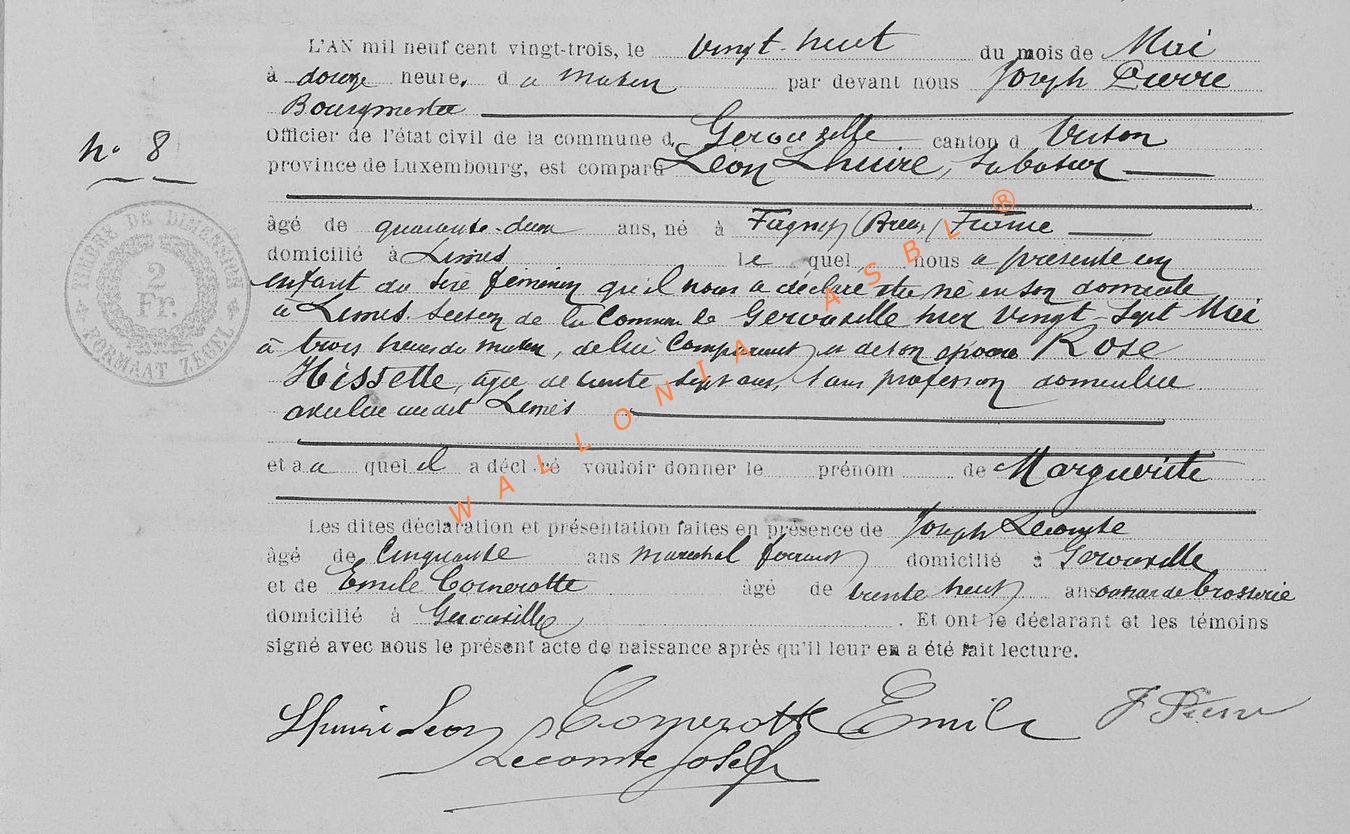 L'AN mil neuf cent vingt-trois, le vingt-huit du mois de Mai
à douze heure, du matin par devant nous Joseph Pierre
Bourgmestre
Officier de l'état civil de la commune d Gérouville canton d Virton
province de Luxembourg, est comparu Léon Lhuire, sabotier
N° 8
âgé de quarante-deux ans, né à Fagny (Breux) France
domicilié à Limes le quel nous a présenté un
enfant du sexe féminin qu'il nous a déclaré être né en son domicile
à Limes section de la Commune de Gérouville hier vingt-sept Mai
à trois heures du matin, de lui Comparant et de son épouse Rose
Hissette, âgée de trente sept ans, sans profession domiciliée
audit Limes
et a quel il a déclaré vouloir donner le prénom de Marguerite
Les dites déclaration et présentation faites en présence de Joseph Lecomte
âgé de Cinquante ans maréchal ferrant domicilié à Gérouville
et de Emile Comerotte âgé de trente huit ans de brosserie
domicilié à Gérouville. Et ont le déclarant et les témoins
signé avec nous le présent acte de naissance après qu'il leur en a été fait lecture.
Lhuire Léon Comerotte Emile J Pierre
Lecomte Joseph
TIMBRE DE DIMENSION
2
Fr.
FORMAAT ZEGEL
WALLONIA ASBL ®